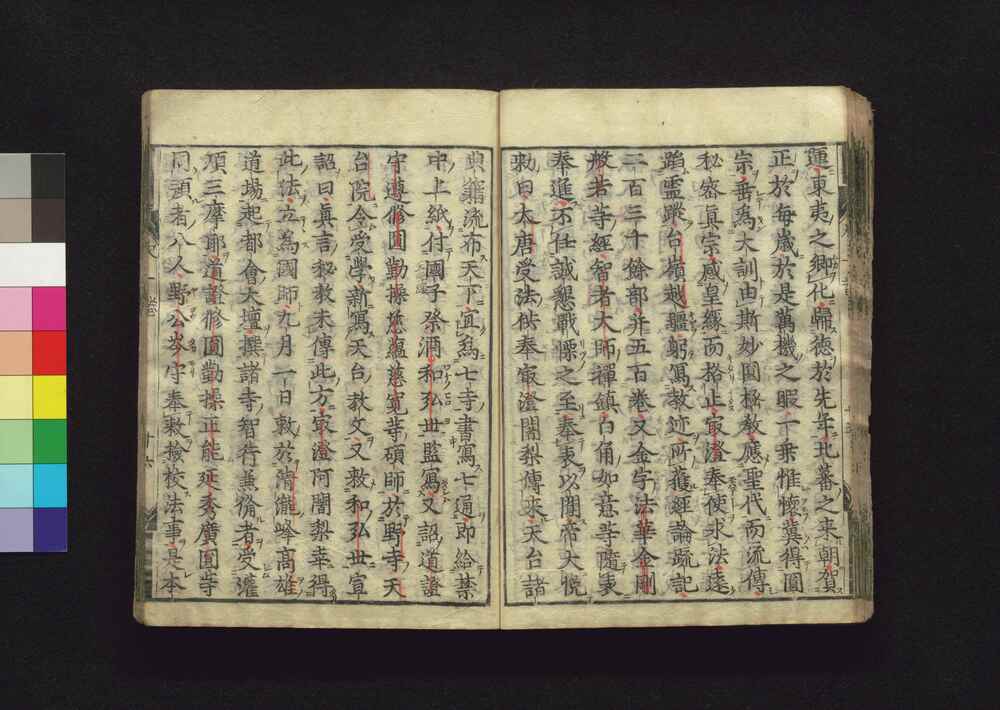 運東夷之鄉化歸德於先年北蕃之来朝賀
正於每歲於是萬機之暇十乘惟懷冀得圓
宗垂爲大訓由斯妙圓極教應聖代而流傳
秘密真宗感皇緣而格止最澄奉使求法遠
蹈靈蹤台嶺越躬寫教迹所獲經論疏記
二百三十餘部并五百卷又金字法華金剛
般若等經智者大師禪鎮白角如意等隨表
奉進不任誠懇戰慄之至奉表以聞帝大悅
勅曰大唐受法供奉最澄闍梨傳来天台諸
典籍流布天下宜爲七寺書寫七通即給禁
中上紙付國子祭酒和弘世監寫又詔道證
守遵修圓勤操慈蘊慈完等碩師於野寺天
台院令受學新寫天台教文又敕和弘世宣
詔曰真言秘教未傳此方最澄阿闍梨幸得
此法立爲國師九月一日敕於清瀧峰高雄
道場起都會大壇撰諸寺智行兼備者受灌
頂三摩耶道證修圓勤操正能延秀廣圓等
同預者八人野公岑守奉敕撿校法事是本